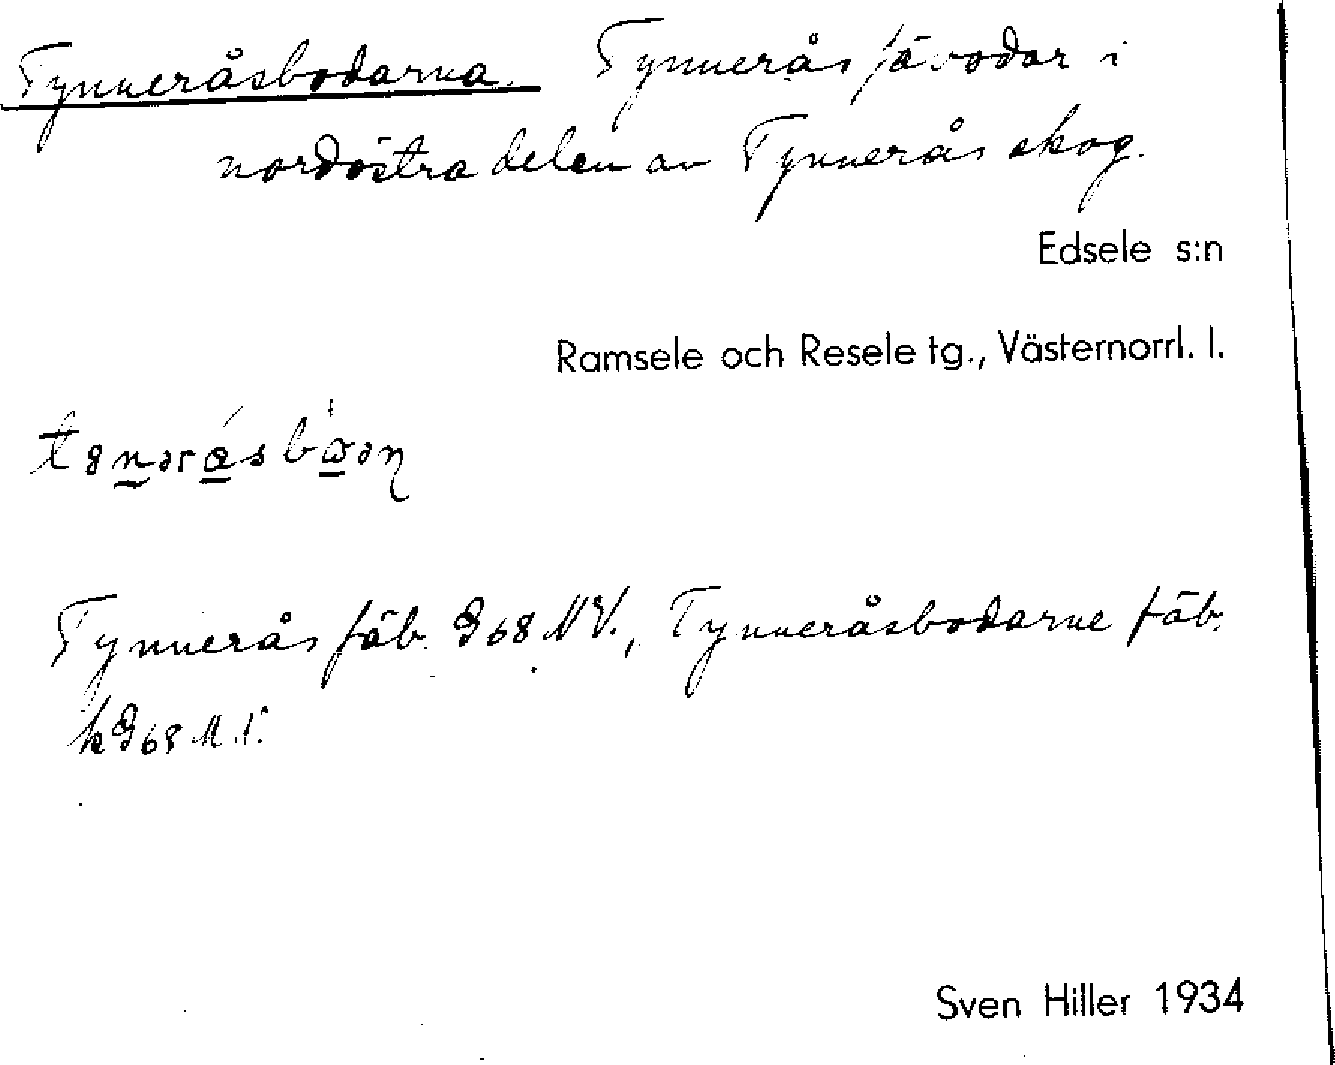 Tynneråsbodarna. Tynnerås fäbodar i
nordöstra delen av Tynnerås skog.
Edsele s:n
Ramsele och Resele tg., Västernorrl. l.
Tynnerås fäb. G 68 NV., Tynneråsbodarne fäb.
k G 68 N.V.
Sven Hiller 1934